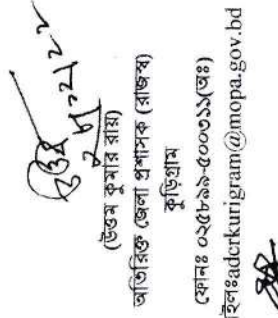 (উত্তম কুমার রায়)
অতিরিক্ত জেলা প্রশাসক (রাজস্ব)
কুড়িগ্রাম
ফোনঃ ০২৫৮৯৯-৫০০৩১১(অঃ)
ইলঃadcrkurigram@mopa.gov.bd